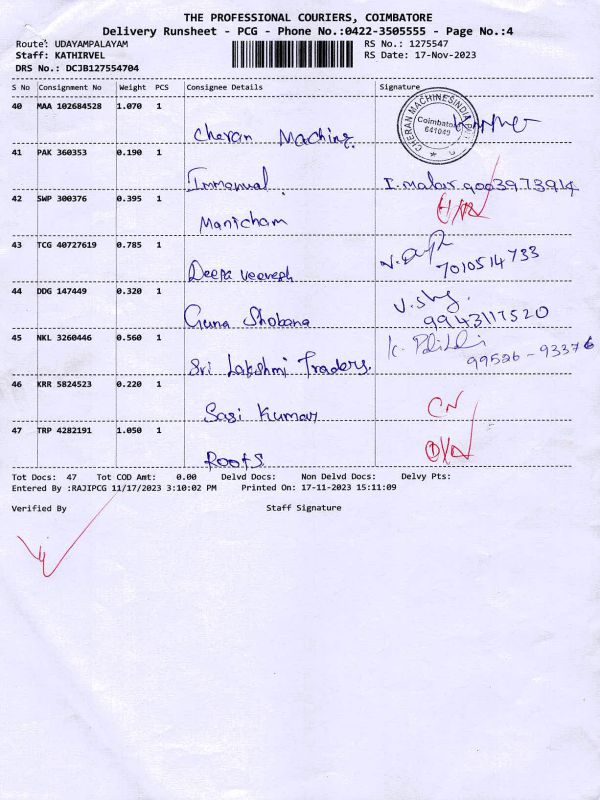 THE PROFESSIONAL COURIERS, COIMBATORE
Delivery Runsheet - PCG - Phone No.:0422-3505555 - Page No.:4
Route: UDAYAMPALAYAM RS No.: 1275547
Staff: KATHIRVEL RS Date: 17-Nov-2023
DRS No.: DCJB127554704
S No Consignment No Weight PCS Consignee Details Signature
40 MAA 102684528 1.070 1
Cheran Machine
CHERAN MACHINES INDIA
Coimbatore
641049
41 PAK 360353 0.190 1
Immanual I. malar 9003973914
42 SWP 300376 0.395 1
Manicham
43 TCG 40727619 0.785 1
Deepa veeresh 7010514733
44 DDG 147449 0.320 1
Guna Shobana 9943117520
45 NKL 3260446 0.560 1
Sri Lakshmi Traders. 99526-93376
46 KRR 5824523 0.220 1
Sasi Kumar CN
47 TRP 4282191 1.050 1
Roots
Tot Docs: 47 Tot COD Amt: 0.00 Delvd Docs: Non Delvd Docs: Delvy Pts:
Entered By :RAJIPCG 11/17/2023 3:10:02 PM Printed On: 17-11-2023 15:11:09
Verified By Staff Signature